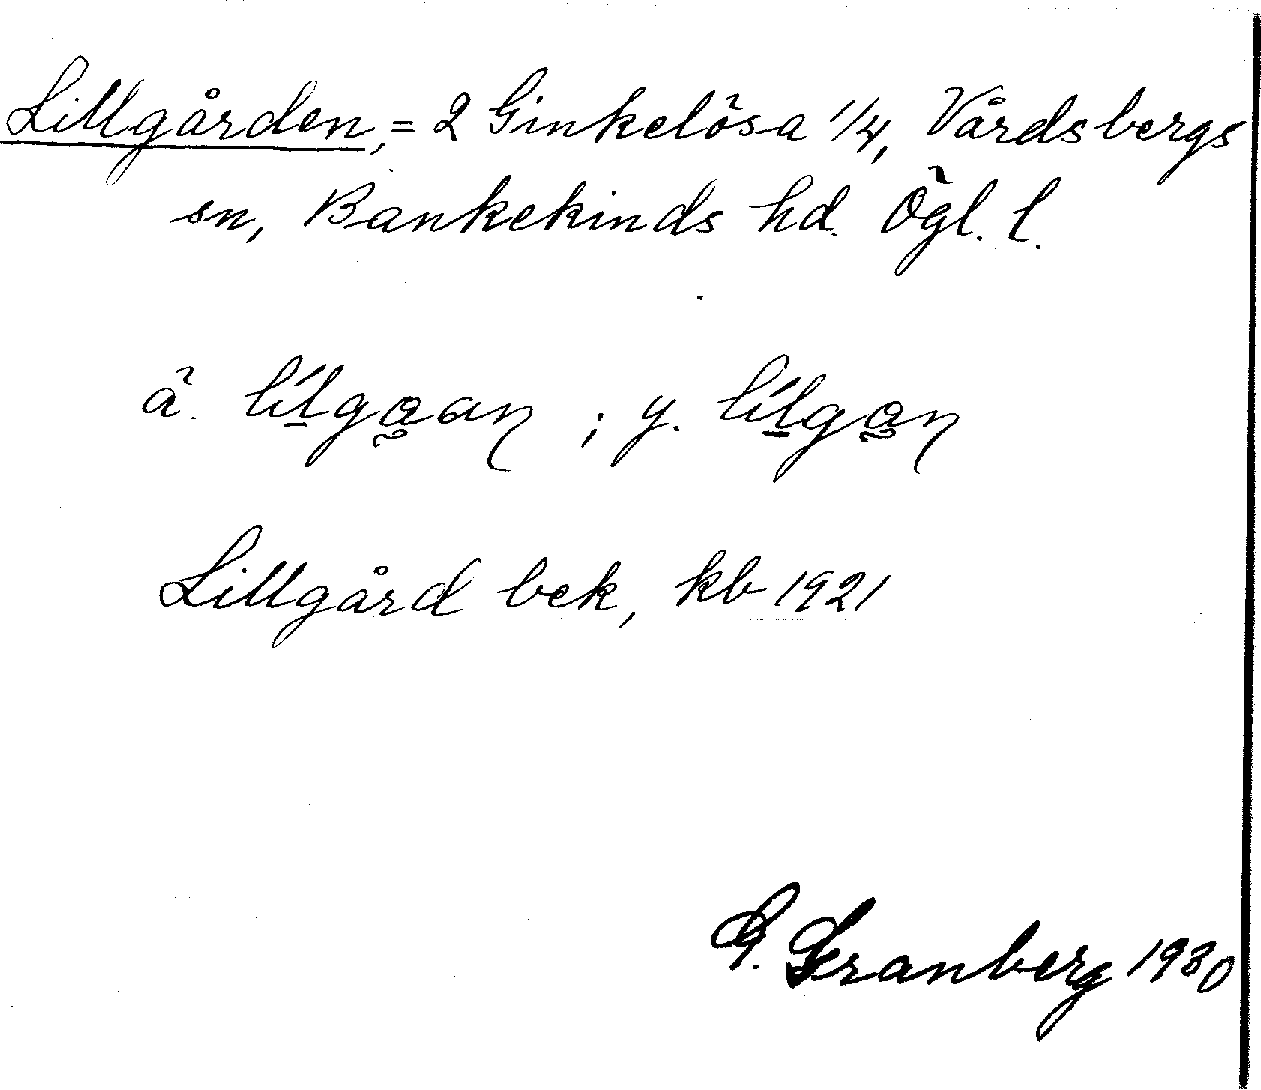 Lillgården, = 2 Ginkelösa 1/4, Vårdsbergs
sn, Bankekinds hd. Ögl. l.
ä. lílgǫan ; y. lílgǫn
Lillgård bek, kb 1921
G. Granberg 1930